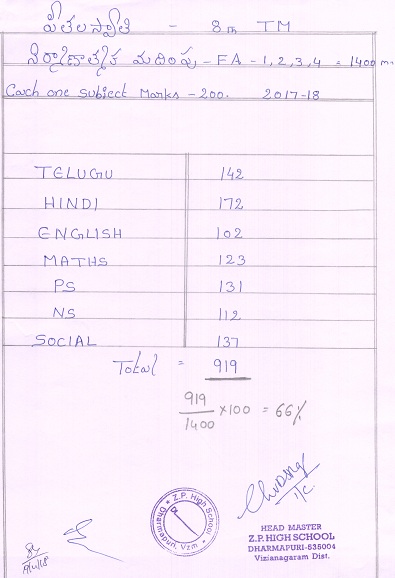 పీతల స్వాతి - 8th TM
నిర్మాణాత్మక మదింపు - FA - 1, 2, 3, 4 = 1400 m
Each one Subject Marks - 200. 2017-18
TELUGU 142
HINDI 172
ENGLISH 102
MATHS 123
PS 131
NS 112
SOCIAL 137
Total = 919
919/1400 x100 = 66%
Z.P. High School
Dharmapuri, Vzm
I/C.
HEAD MASTER
Z.P. HIGH SCHOOL
DHARMAPURI-535004
Vizianagaram Dist.